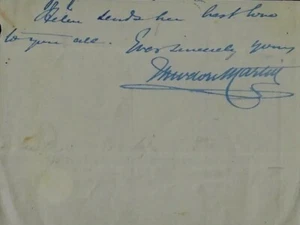 Helen sends her best love
to you all. Ever sincerely yours
Theodore Martin